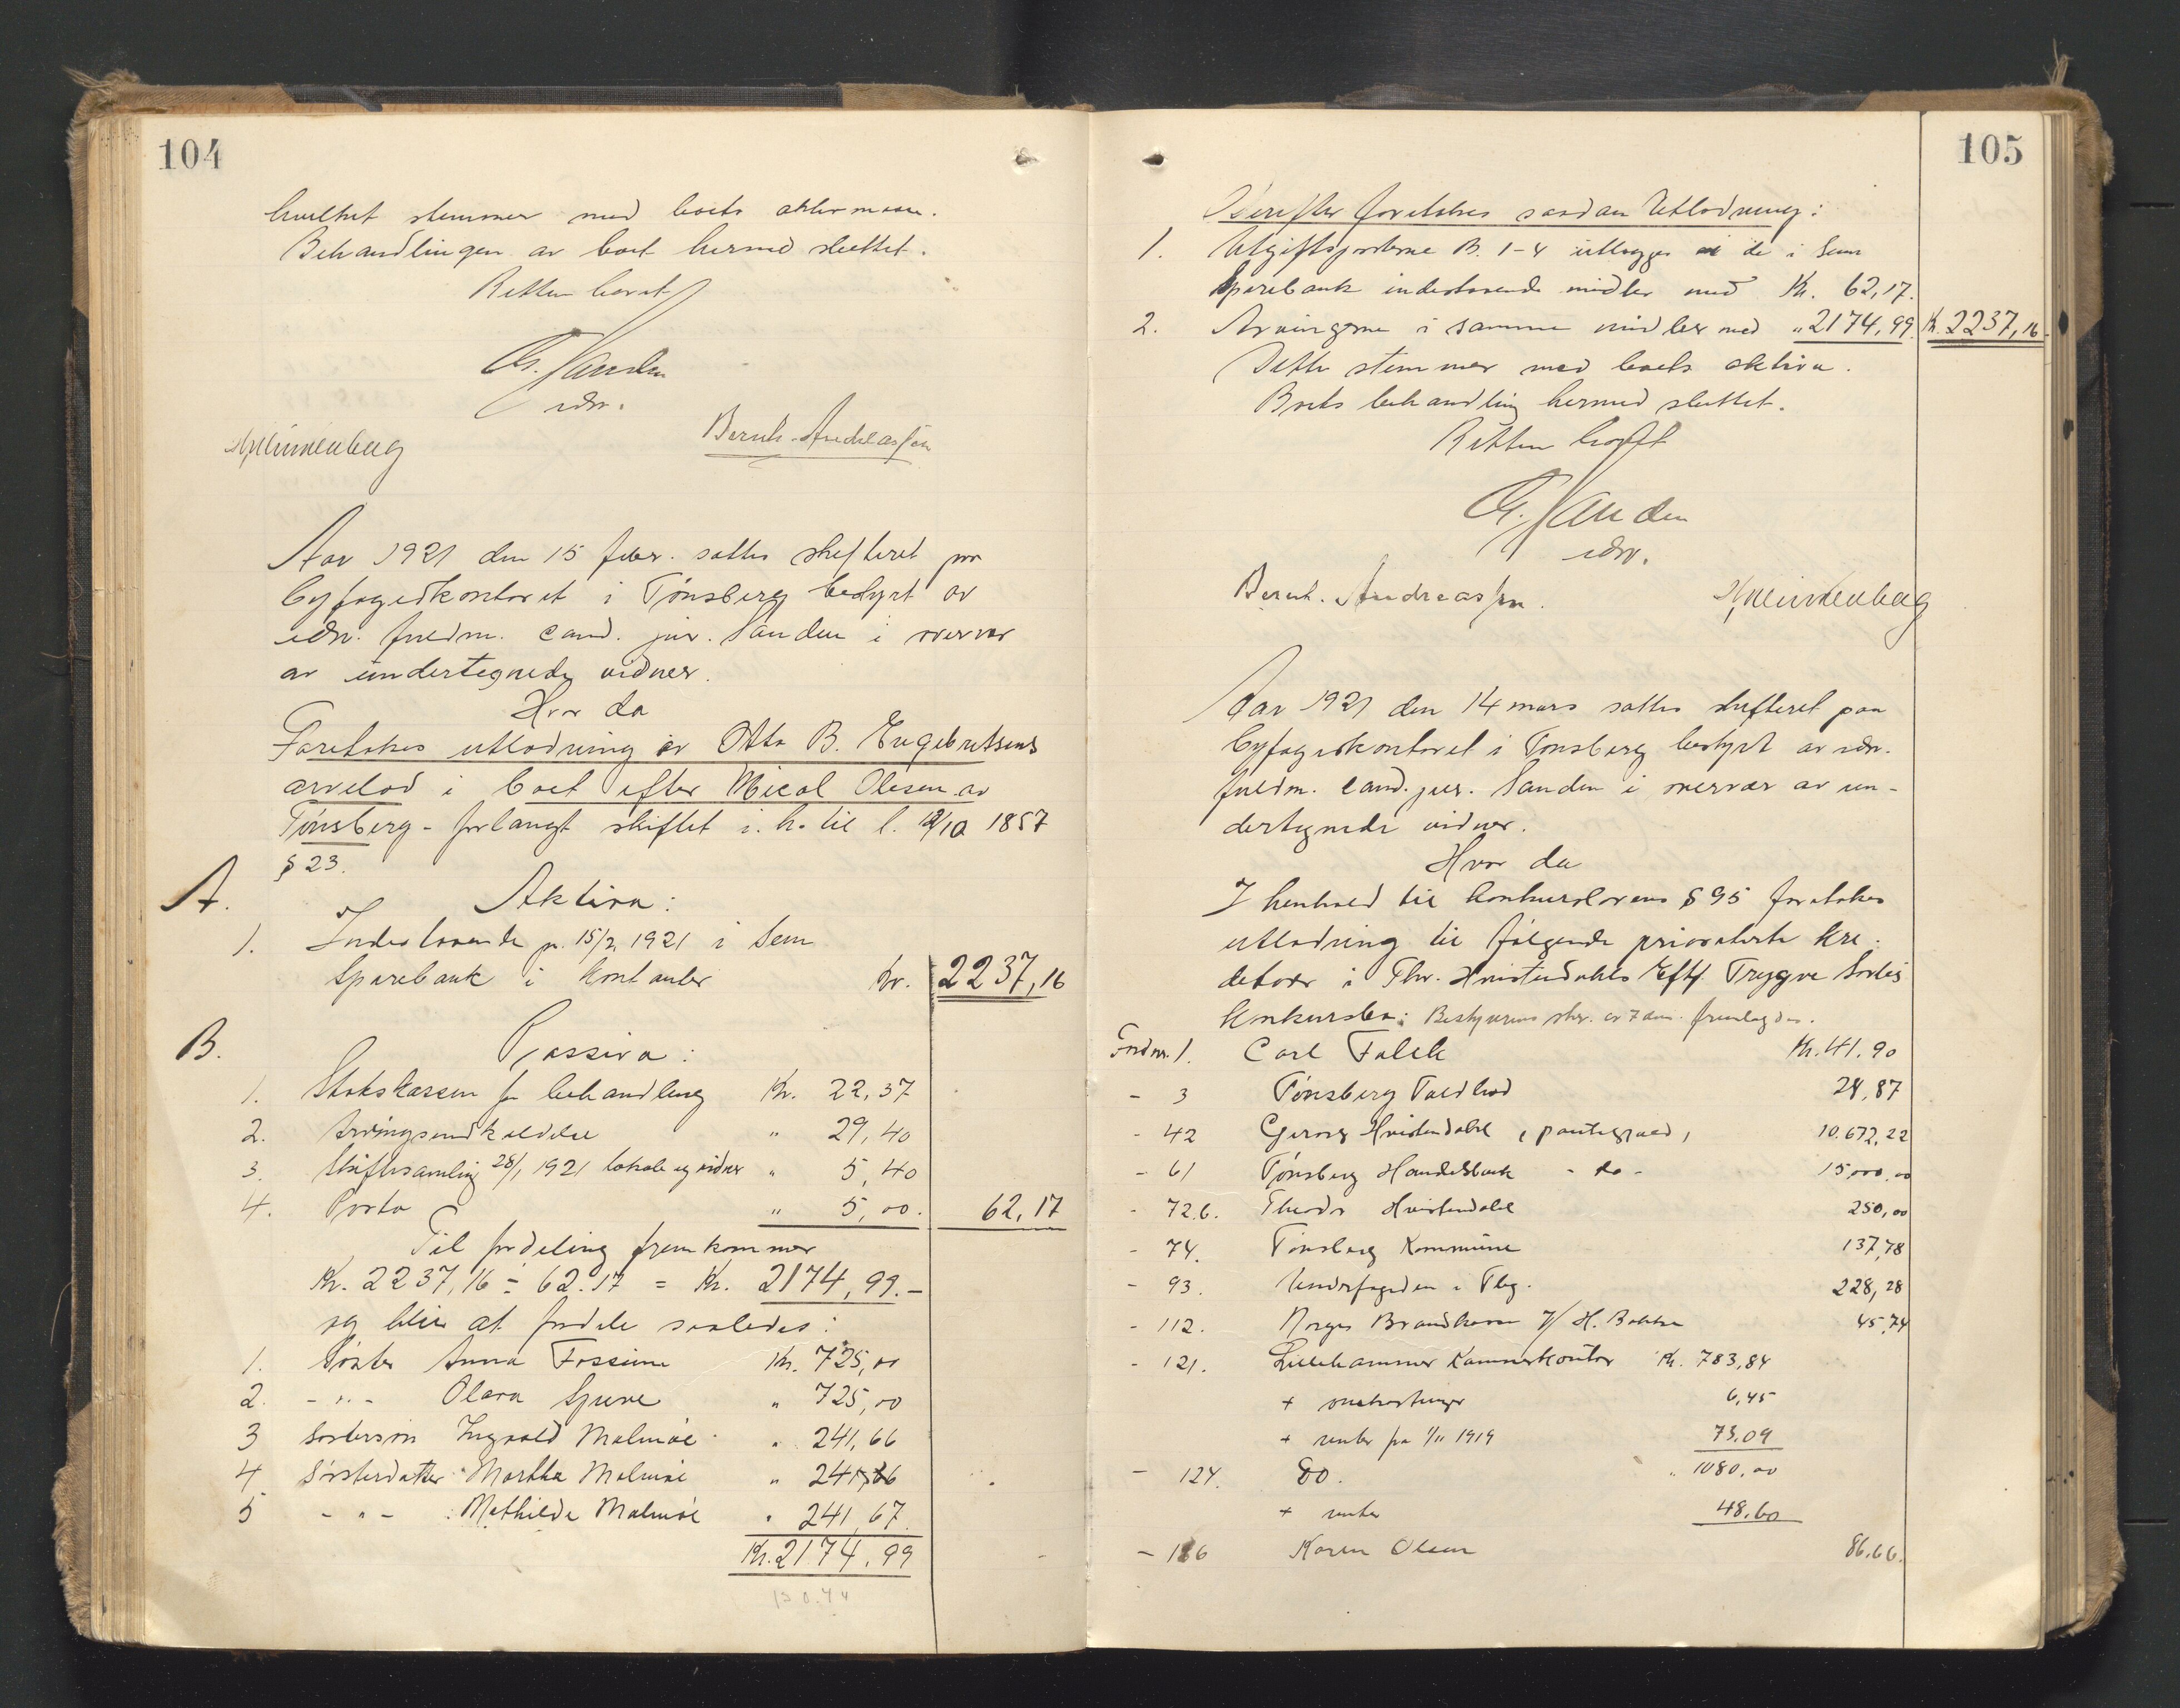 104
hvilket stemmer med boets aktivmasse.
Behandlingen av boet hermed sluttet.
Retten hævet
Sanden
edsv.
Bernh. Andreassen
Aar 1921 den 15 febr. sattes skifteret paa
byfogedkontoret i Tønsberg bestyrt av
edsv. fuldm. cand. jur. Sanden i overvær
av undertegnede vidner.
Hvor da
Foretokes utlodning av Otto B. Engebretsens
arvelod i boet efter Nicol Olesen av
Tønsberg - forlangt skiftet i. h. til l. 12/10 1857
§ 23.
A. Aktiva:
1. Indestaaende pr. 15/2 1921 i Sem
Sparebank i kontanter Kr. 2237,16
B. Passiva:
1. Statskassen for behandling Kr. 22,37
2. Arvingsindkaldelse " 29,40
3. Skiftesamling 28/1 1921 lokale og vidner " 5,40
4. Porto " 5,00. 62,17
Til fordeling fremkommer
Kr. 2237,16 ÷ 62.17 = Kr. 2174,99.-
og blir at fordele saaledes:
1. Søster Anna Fossum Kr. 725,00
2. - " - Olava " 725,00
3 Søstersøn Ingvald Malmøe " 241,66
4. Søsterdatter Martha Malmøe " 241,66
5 - " - Mathilde Malmøe " 241,67
Kr. 2174,99
105
Derefter foretokes saadan Utlodning:
1. Utgiftsposterne B. 1-4 utlægges i de i Sem
Sparebank indestaaende midler med Kr. 62,17.
2. Arvingerne i samme midler med " 2174,99. Kr. 2237,16
Dette stemmer med boets aktiva.
Boets behandling hermed sluttet.
Retten hævet
Sanden
edsv.
Bernh. Andreassen.
Aar 1921 den 14 mars sattes skifteret paa
byfogedkontoret i Tønsberg bestyrt av edsv.
fuldm. cand. jur. Sanden i overvær av un-
dertegnede vidner.
Hvor da
I henhold til konkurslovens § 95 foretokes
utlodning til følgende prioriterte kre-
ditorer i Thv. Hvistendahls Eftf. Trygve
konkursbo: Bestyrerens skr. av 7 ds. fremlagdes.
Ford nr. 1. Carl Falck Kr. 41.90
- 3 Tønsberg Toldbod 28,87
- 42 Georg Hvistendahl (pantegjæld) 10.672,22
- 61 Tønsberg Handelsbank - do - 15,000,00
- 72.b. Theodor Hvistendahl 250,00
- 74. Tønsberg Kommune 137,78
- 93. Underfogden i Tbg. 228,28
- 112. Norges Brandkasse v/ H. Bakke 45,74
- 121. Lillehammer Kæmnerkontor Kr. 783,84
+ omkostninger 6,45
+ renter fra 1/11 1919 73.09
- 124. Do. " 1080,00
+ renter 48.60
- 186 Karen Olsen 86,66.